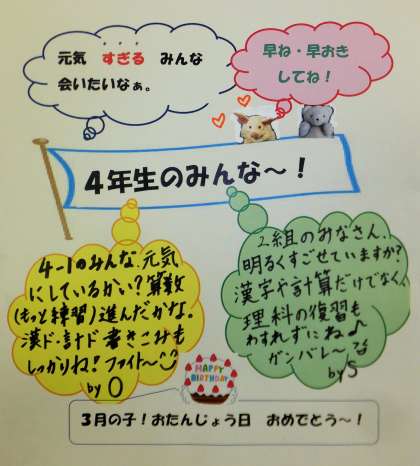 元気 すぎる みんな
会いたいなぁ。
早ね・早おき
してね！
4年生のみんな～！
4-1のみんな、元気
にしているかい？算数
(もっと練習)進んだかな。
漢ド・計ド書きこみも
しっかりね！ファイト～
by O
2組のみなさん、
明るくすごせていますか？
漢字や計算だけでなく、
理科の復習も
わすれずにね♪
ガンバレ～
by S
HAPPY
BIRTHDAY
3月の子！おたんじょう日 おめでとう～！